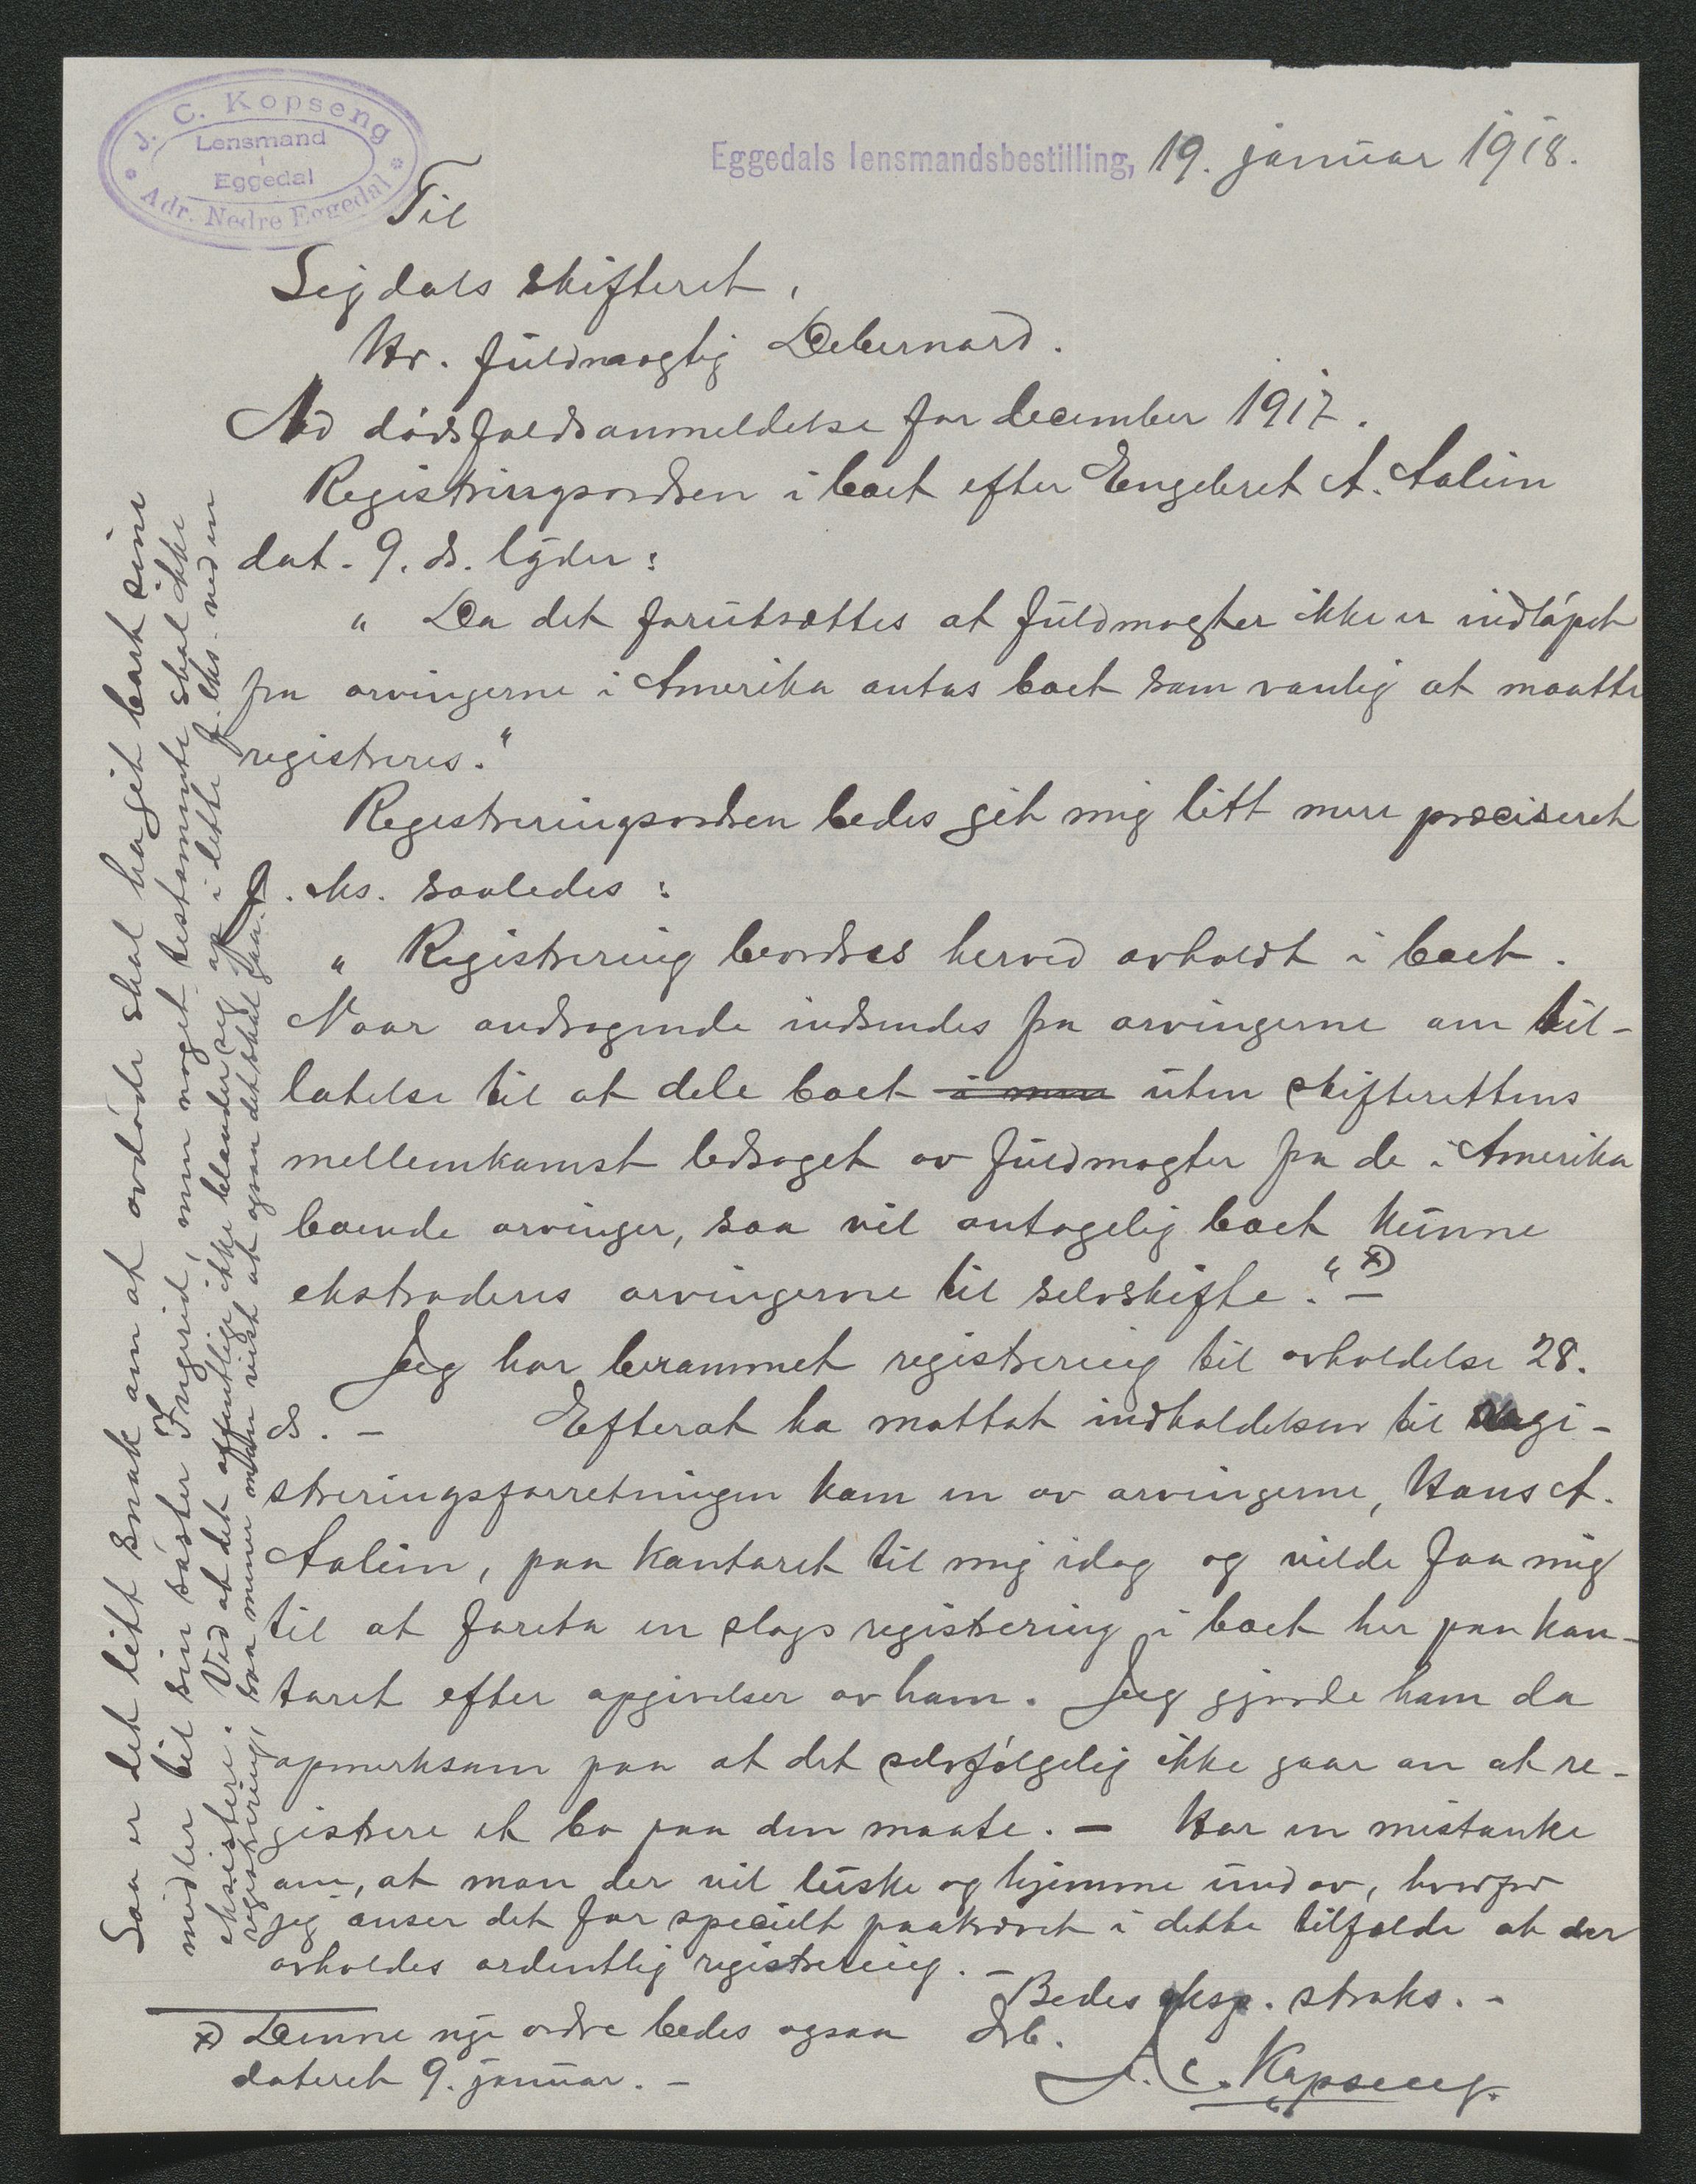 J. C. Kopseng
Lensmand
i
Eggedal
Adr. Nedre Eggedal
Eggedals lensmandsbestilling, 19. januar 1918.
Til
Sigdals skifteret,
Hr. fuldmægtig Debernard.
Ad dødsfaldsanmeldelse for december 1917.
Registringsordren i boet efter Engebret A. Aalien
dat. 9. ds. lyder:
" Da det forutsættes at fuldmagter ikke er indløpet
fra arvingerne i Amerika antas boet som vanlig at maatte
registreres."
Registreringsordren bedes git mig litt mere præciseret
f. eks. saaledes:
" Registrering beordres herved avholdt i boet.
Naar andragende indsendes fra arvingerne om til-
latelse til at dele boet i min uten skifterettens
mellemkomst ledsaget av fuldmagter fra de i Amerika
boende arvinger, saa vil antagelig boet kunne
ekstraderes arvingerne til selvskifte." x)
Jeg har berammet registrering til avholdelse 28.
ds. - Efterat ha mottat indkaldelsen til regi-
streringsforretningen kom en av arvingerne, Hans A.
Aalien, paa kontoret til mig idag og vilde faa mig
til at foreta en slags registrering i boet her paa kon-
toret efter opgivelser av ham. Jeg gjorde ham da
opmerksom paa at det selvfølgelig ikke gaar an at re-
gistrere et bo paa den maate. - Har en mistanke
om, at man der vil luske og gjemme und av, hvorfor
jeg anser det for specielt paakrævet i dette tilfælde at der
avholdes ordentlig registrering. -
Bedes eksp. straks. -
Ærb.
J. C. Kopseng.
x) Denne nye ordre bedes ogsaa
dateret 9. januar. -
Saa er det litt snak om at avdøde skal ha git bort sine
midler til sin søster Ingerid, men noget testamente skal ikke
eksistere. Ved at det offentlige ikke blander sig op i dette f. eks. ved en
registrering, saa mener man vist at ogsaa det skal gaa.